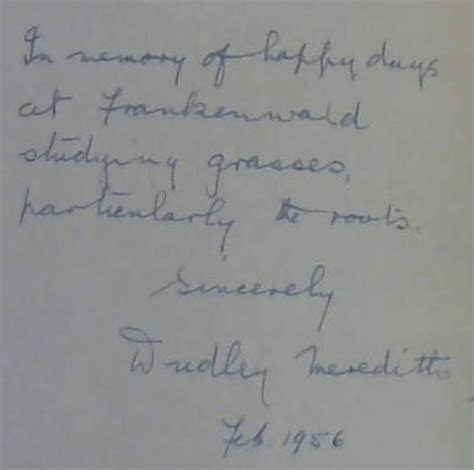 In memory of happy days
at Frankenwald
studying grasses,
particularly the roots.
Sincerely
Dudley Meredith
Feb. 1956